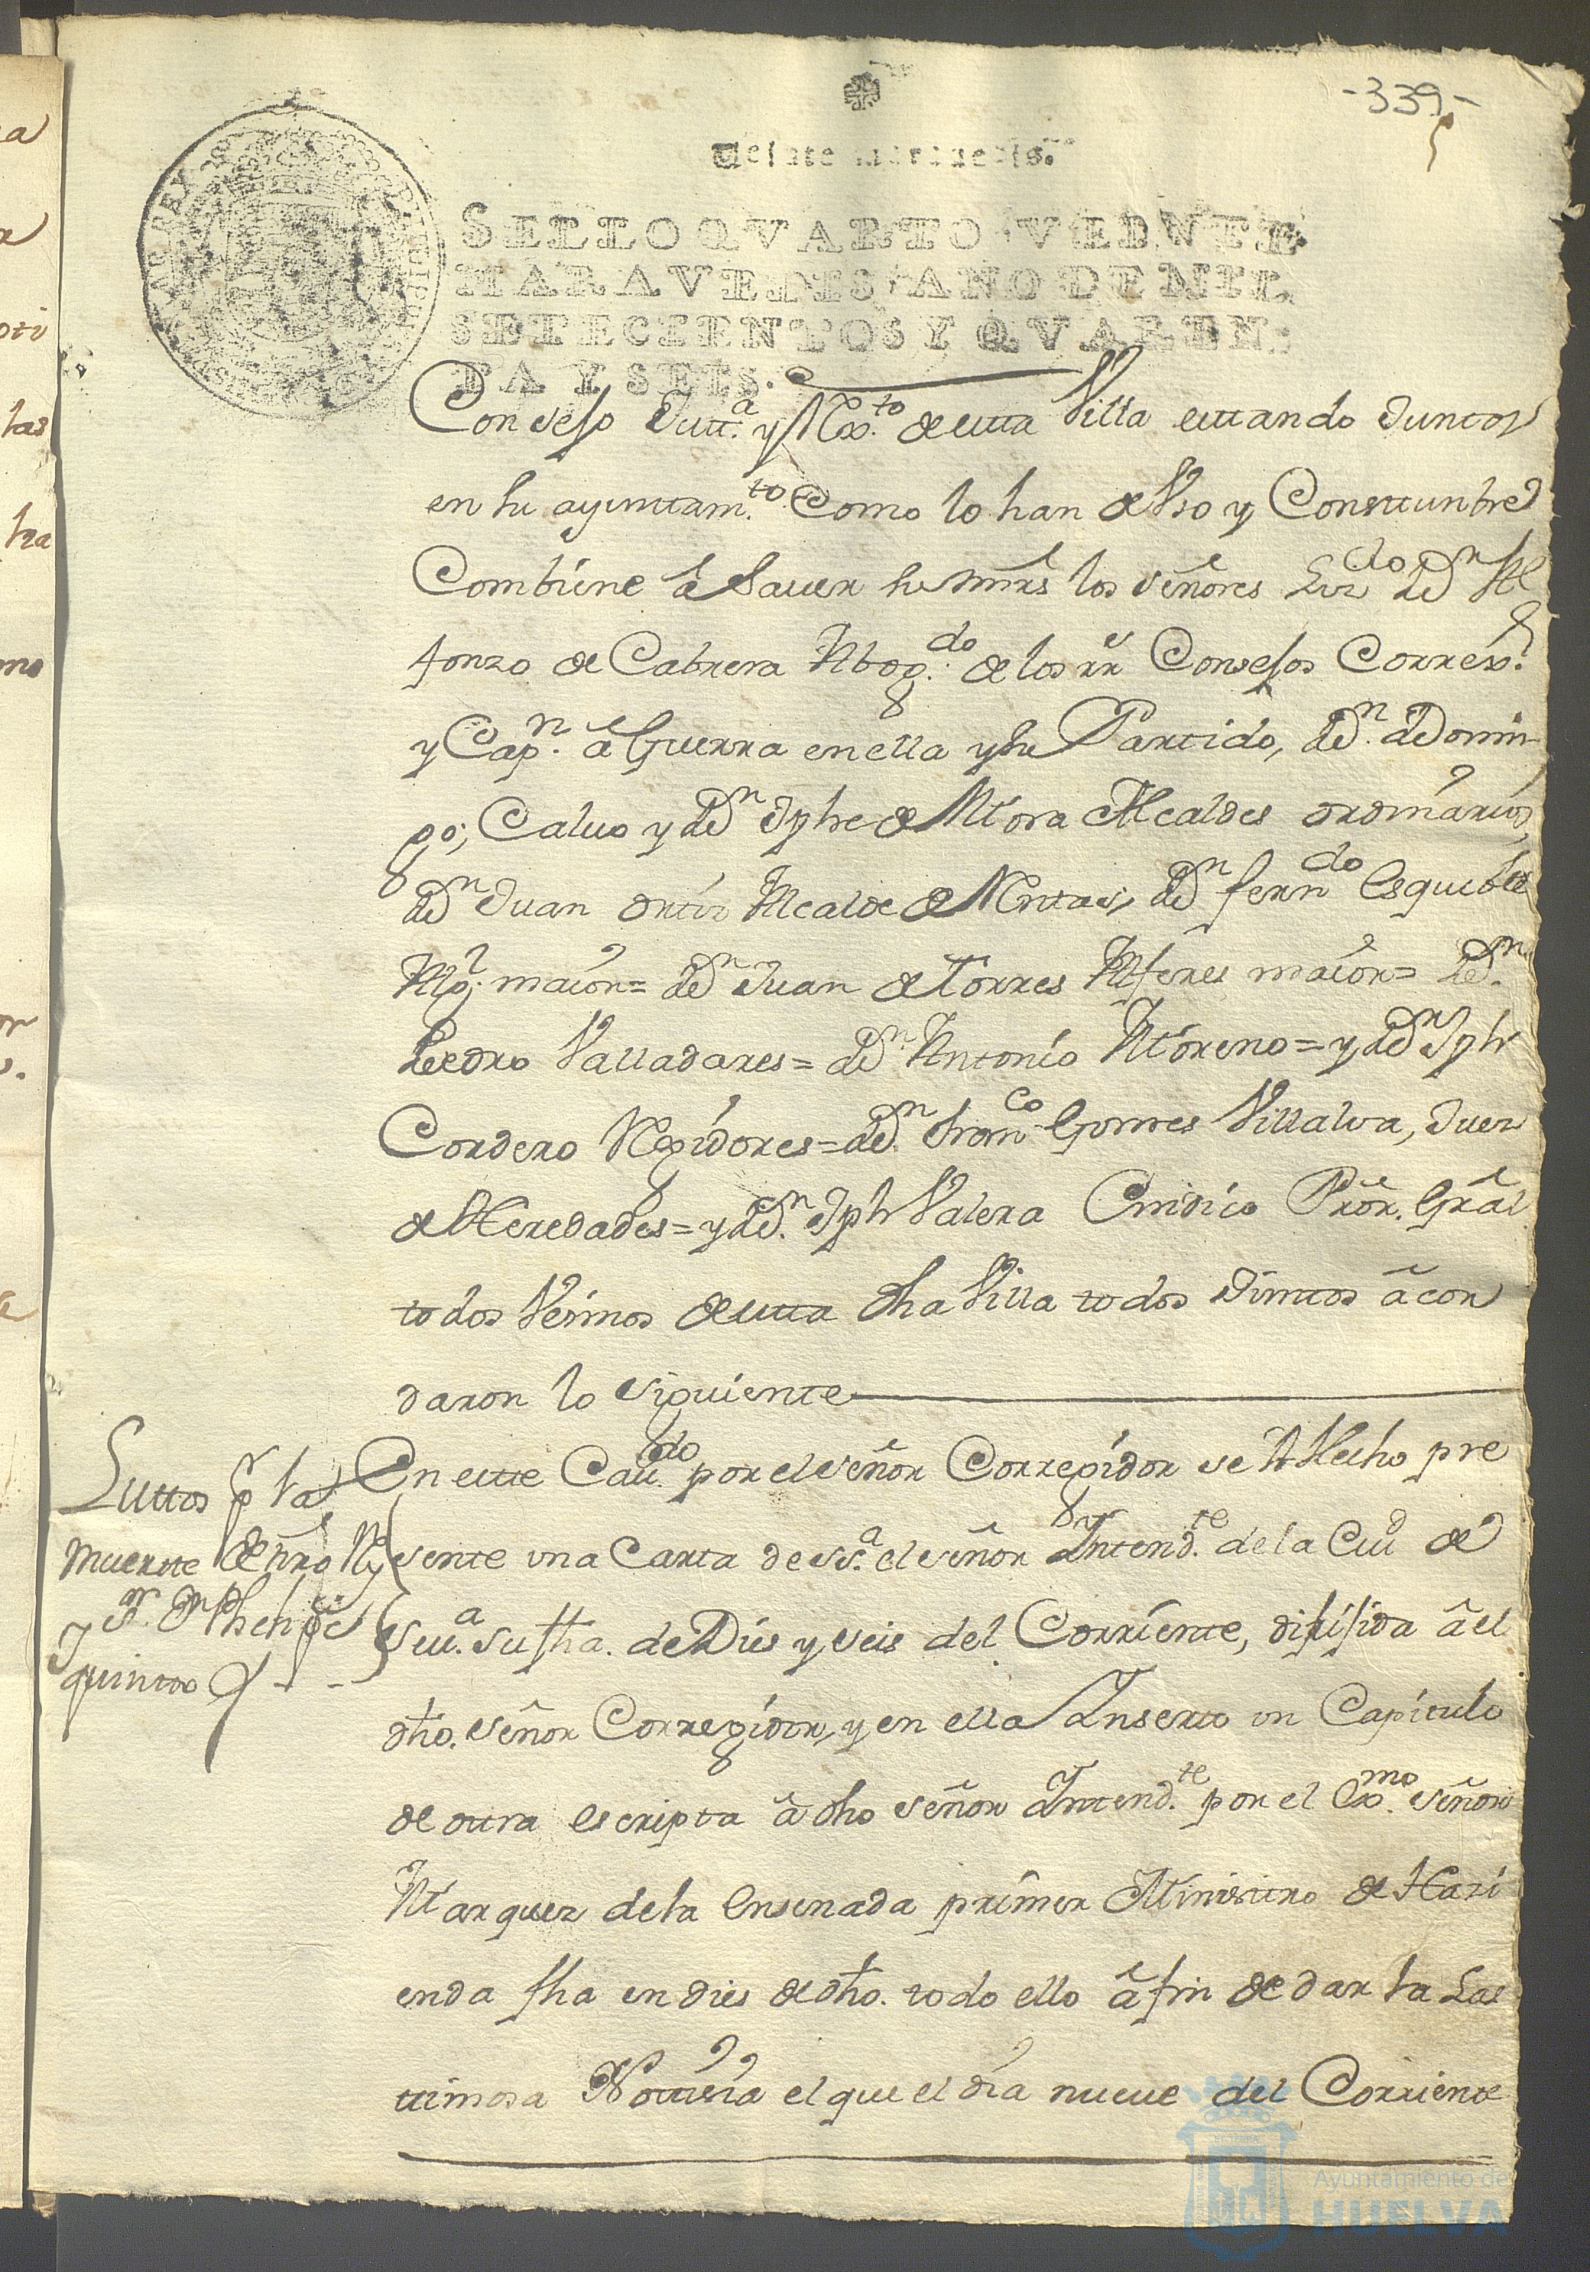 -339-
Veinte maravedis.
SELLO QVARTO, VEINTE
MARAVEDIS, AÑO DE MIL
SETECIENTOS Y QVAREN-
TA Y SEIS.
Consejo Justt.ª y Rex.to de estta Villa esttando Juntos
en su ayunttam.to Como lo han de Vso y Consttunbre
Combiene â Sauer su mrs̃ los señores Liz.do Dn Al
fonzo de Cabrera Abog.do de los rr.s Consejos Correx.r
y Cap.n â Guerra en ella y su Partido, Dn. Domin-
go, Calvo y Dn Jph de Mora Alcaldes ordinarios,
Dn Juan Ortiz Alcalde de Mestas, Dn fern.do Esquibel
Alg.l maior= Dn Juan de Torres Alferes maior= Dn.
Pedro Valladares= Dn. Antonio Moreno= y Dn Jph
Cordero Regidores= Dn. Fran.co Gomes Villalva, Juez
de Heredades= y Dn. Jph Valera Cindico Prõr. Grãl
todos Vesinos de estta dha Villa todos Juntos âcor
daron lo siguiente
Luttos p.r la
muertte de nrõ Rey
y S.r Dn Phelipe
quintto
En estte Cau.do por el señor Corregidor se â Hecho pre
sente vna Carta de ss.ª el señor Intend.te de la Ciu.d de
Seu.ª su fha. de Dies y seis del Corriente, dirijida â el
dho. señor Corregidor, y en ella Inserto vn Capitulo
de ottra escripta â dho señor Intend.te por el Ex.mo señor
Marquez de la Ensenada primer Ministtro de Hazi
enda fha en dies de dho. todo ello â fin de dar la Las
ttimosa Notticia el que el dia nueue del Corriente
Ayuntamiento de
HUELVA